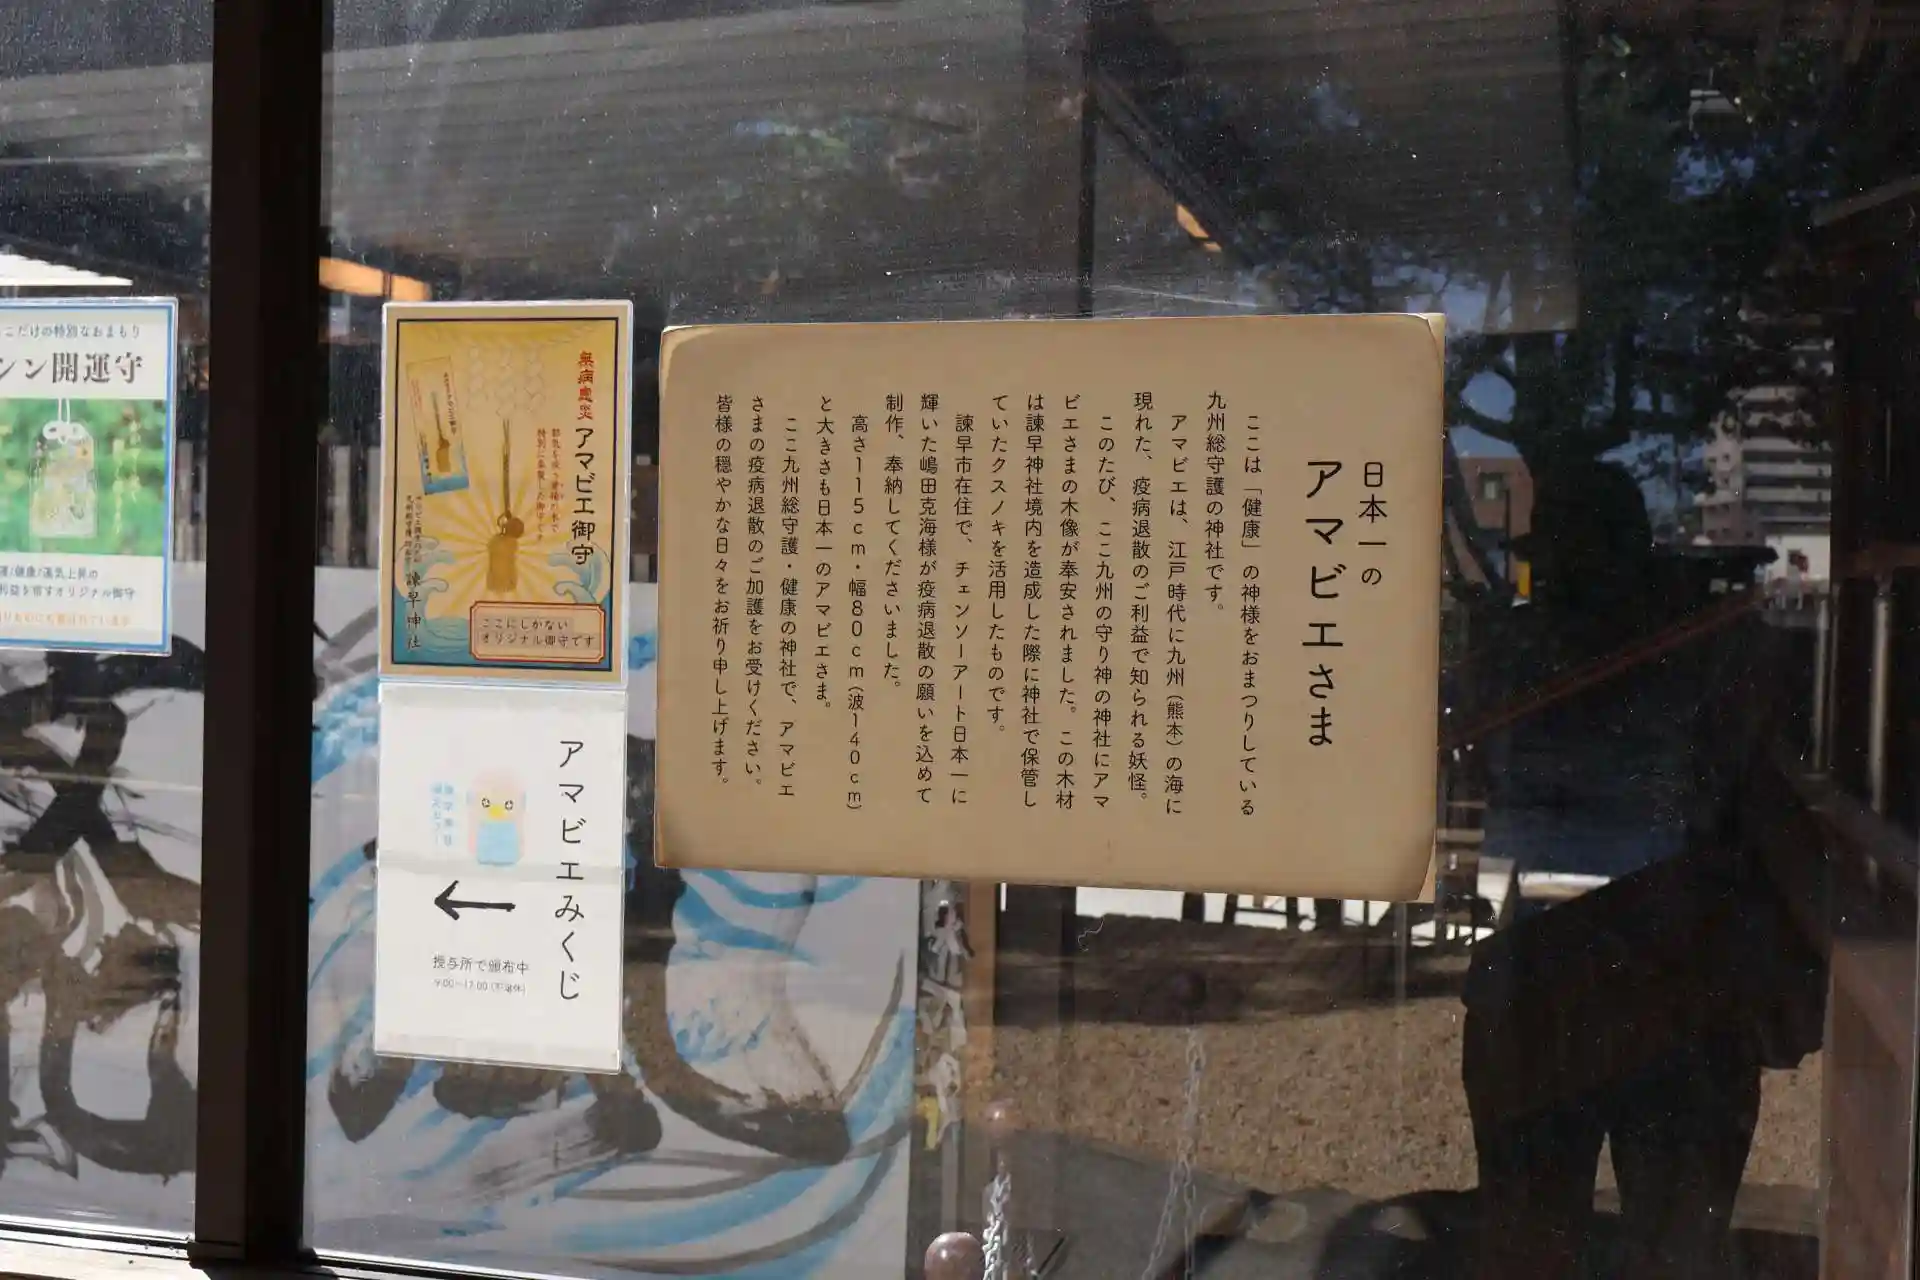 日本一の
アマビエさま
ここは「健康」の神様をおまつりしている
九州総守護の神社です。
アマビエは、江戸時代に九州（熊本）の海に
現れた、疫病退散のご利益で知られる妖怪。
このたび、ここ九州の守り神の神社にアマ
ビエさまの木像が奉安されました。この木材
は諫早神社境内を造成した際に神社で保管し
ていたクスノキを活用したものです。
諫早市在住で、チェンソーアート日本一に
輝いた嶋田克海様が疫病退散の願いを込めて
制作、奉納してくださいました。
高さ115cm・幅80cm（波140cm）
と大きさも日本一のアマビエさま。
ここ九州総守護・健康の神社で、アマビエ
さまの疫病退散のご加護をお受けください。
皆様の穏やかな日々をお祈り申し上げます。
無病息災
アマビエ御守
諫早神社
ここにしかない
オリジナル御守です
アマビエみくじ
授与所で頒布中
9:00〜17:00
こだけの特別なおまもり
シン開運守
健康/運気上昇の
利益を宿すオリジナル御守